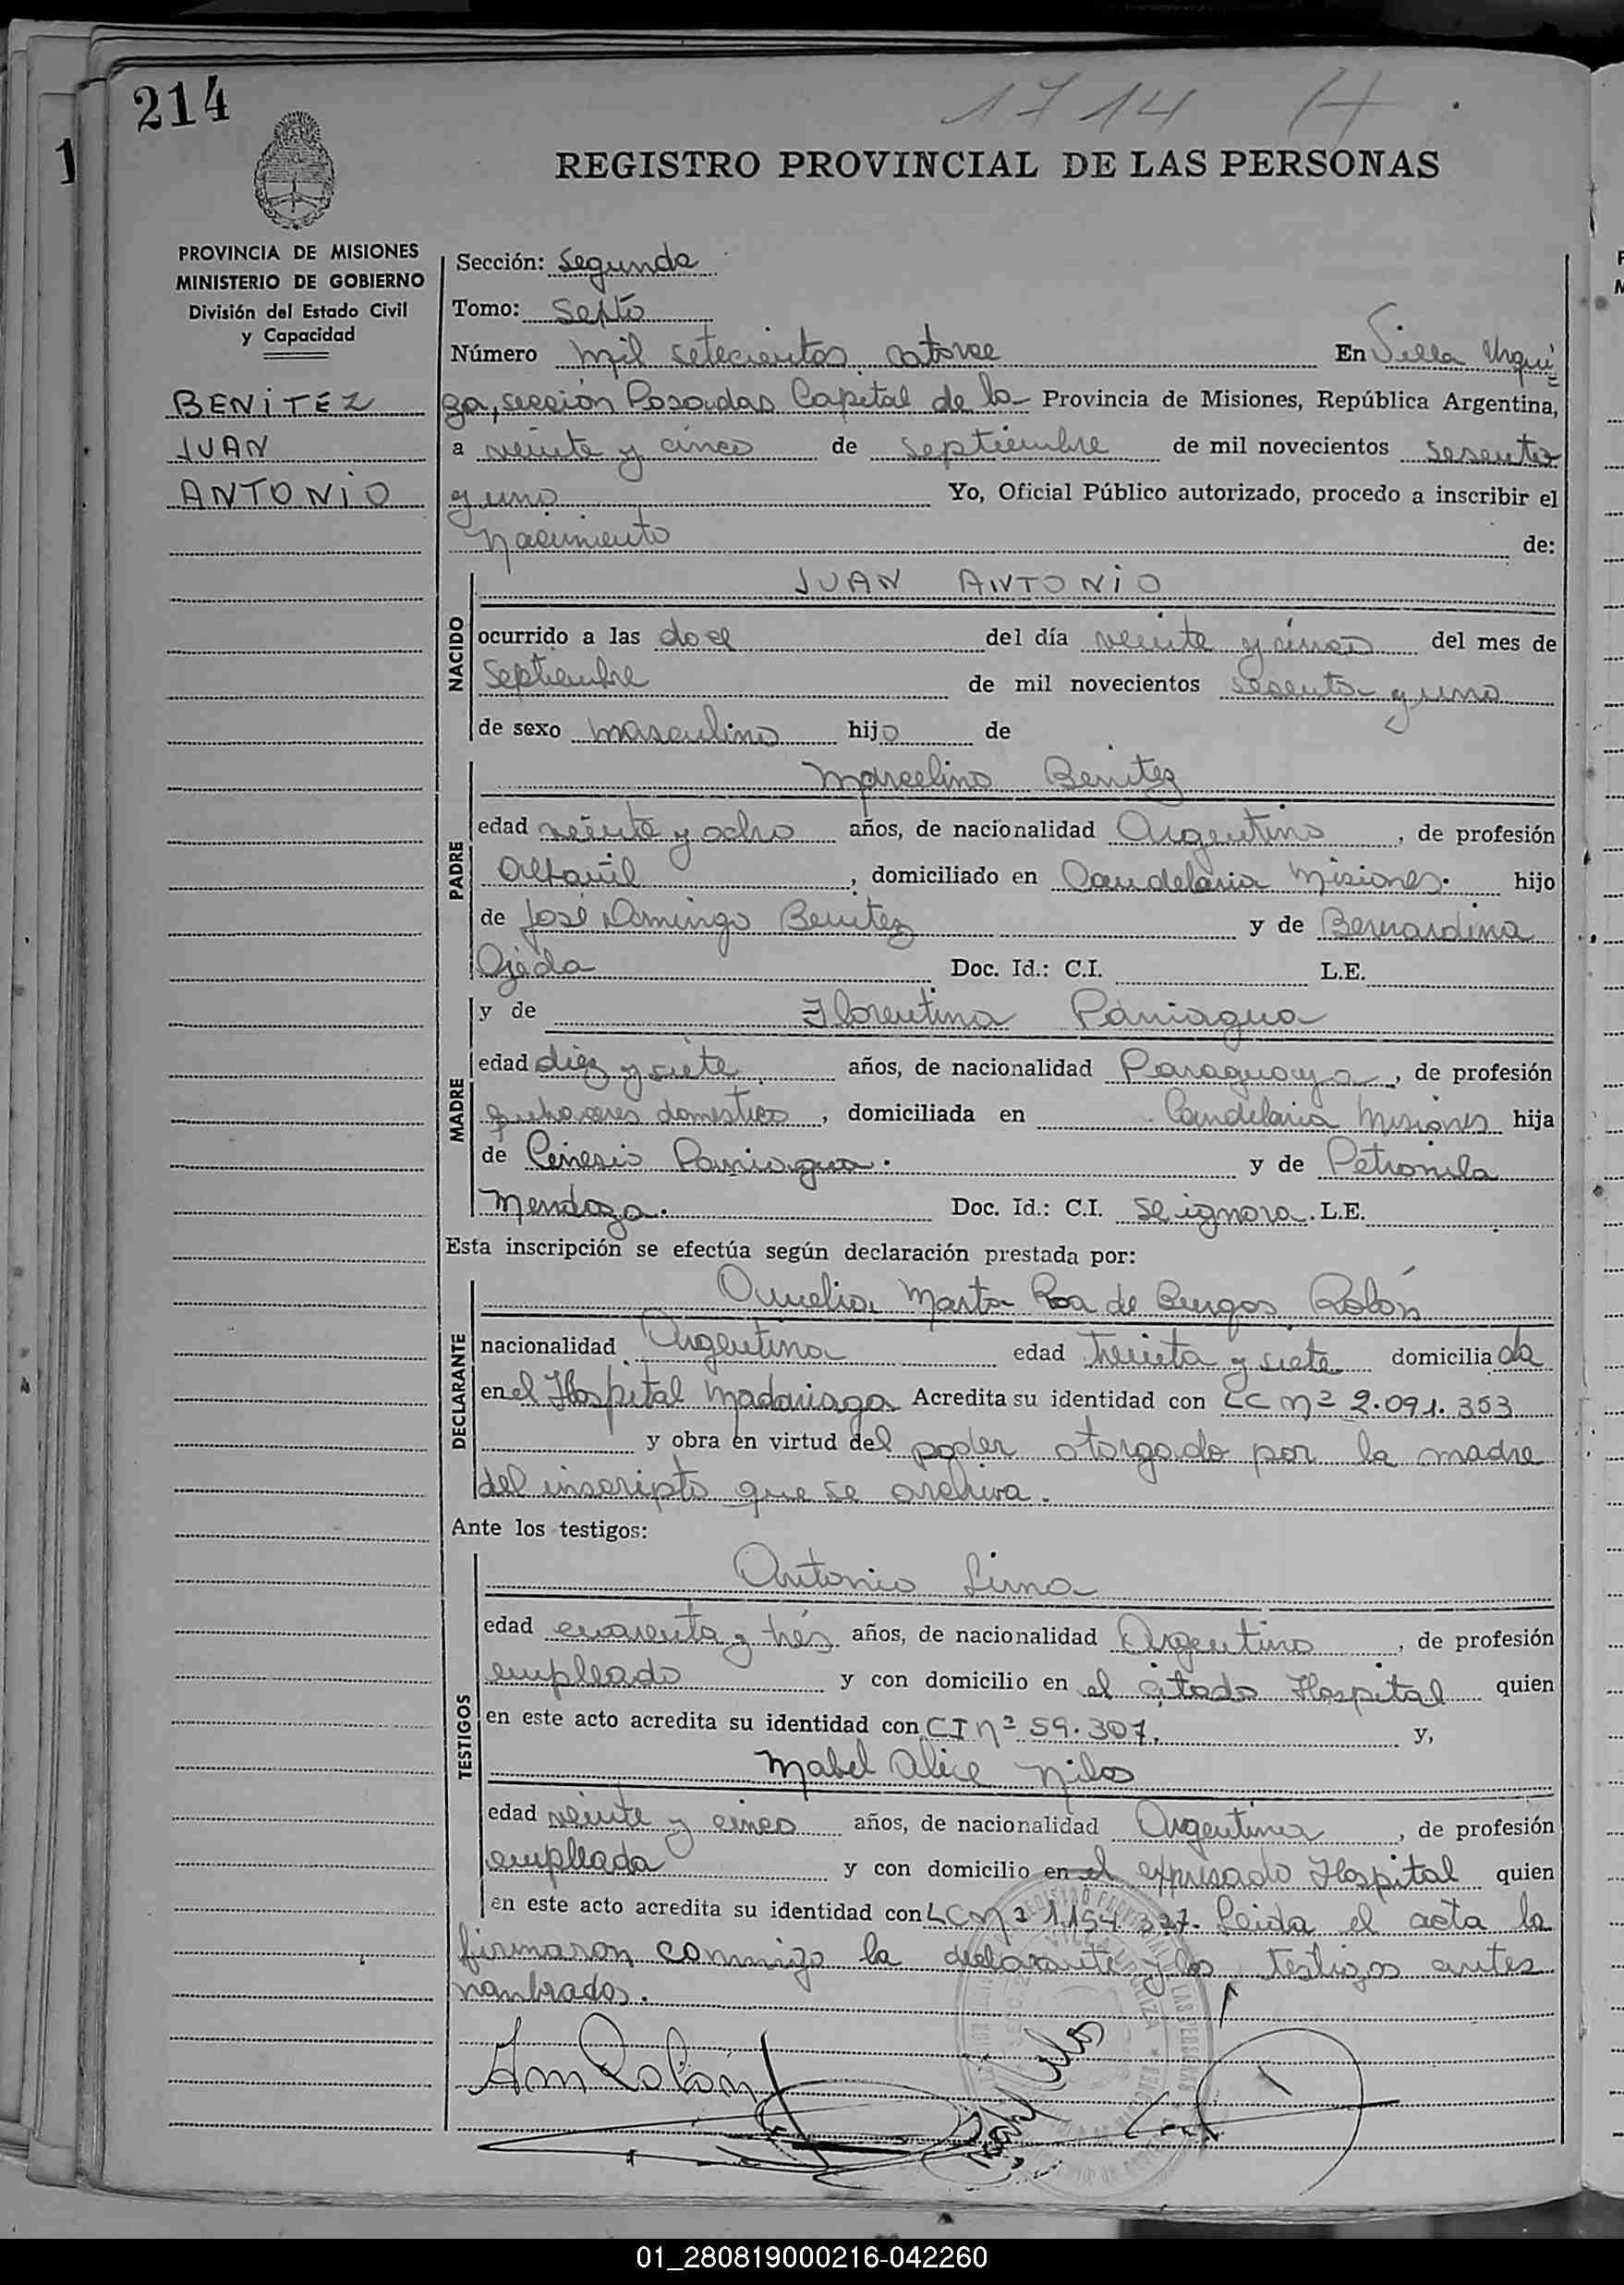 214
1714 H
REGISTRO PROVINCIAL DE LAS PERSONAS
PROVINCIA DE MISIONES
MINISTERIO DE GOBIERNO
División del Estado Civil
y Capacidad
BENITEZ
JUAN
ANTONIO
Sección: Segunda
Tomo: Septo
Número mil setecientos catorce En Villa Urqui
za, sección Posadas Capital de la Provincia de Misiones, República Argentina,
a veinte y cinco de septiembre de mil novecientos sesenta
y uno Yo, Oficial Público autorizado, procedo a inscribir el
Nacimiento de:
NACIDO
JUAN ANTONIO
ocurrido a las doce del día veinte y cinco del mes de
Septiembre de mil novecientos sesenta y uno
de sexo masculino hijo de
PADRE
Marcelino Benitez
edad veinte y ocho años, de nacionalidad Argentino, de profesión
Albañil, domiciliado en Candelaria Misiones. hijo
de José Domingo Benitez y de Bernardina
Ojeda Doc. Id.: C.I. L.E.
MADRE
y de Florentina Paniagua
edad diez y siete años, de nacionalidad Paraguaya, de profesión
quehaceres domestico, domiciliada en Candelaria Misiones hija
de Cinesio Paniagua. y de Petronila
Mendoza. Doc. Id.: C.I. se ignora. L.E.
Esta inscripción se efectúa según declaración prestada por:
DECLARANTE
Aurelia Marta Roa de Burgos Rolón
nacionalidad Argentina edad Treinta y siete domiciliada
en el Hospital Madariaga Acredita su identidad con LC nº 2.091.353
y obra en virtud del poder otorgado por la madre
del inscripto que se archiva.
Ante los testigos:
TESTIGOS
Antonio Lima
edad cuarenta y trés años, de nacionalidad Argentino, de profesión
empleado y con domicilio en el citado Hospital quien
en este acto acredita su identidad con CI nº 59.307. y,
Mabel Alice Nilos
edad veinte y cinco años, de nacionalidad Argentina, de profesión
empleada y con domicilio en el expresado Hospital quien
en este acto acredita su identidad con LC nº 1.154.327. Leida el acta la
firmaron conmigo la declarante y los testigos antes
nombrados.
AmRolón
01_280819000216-042260